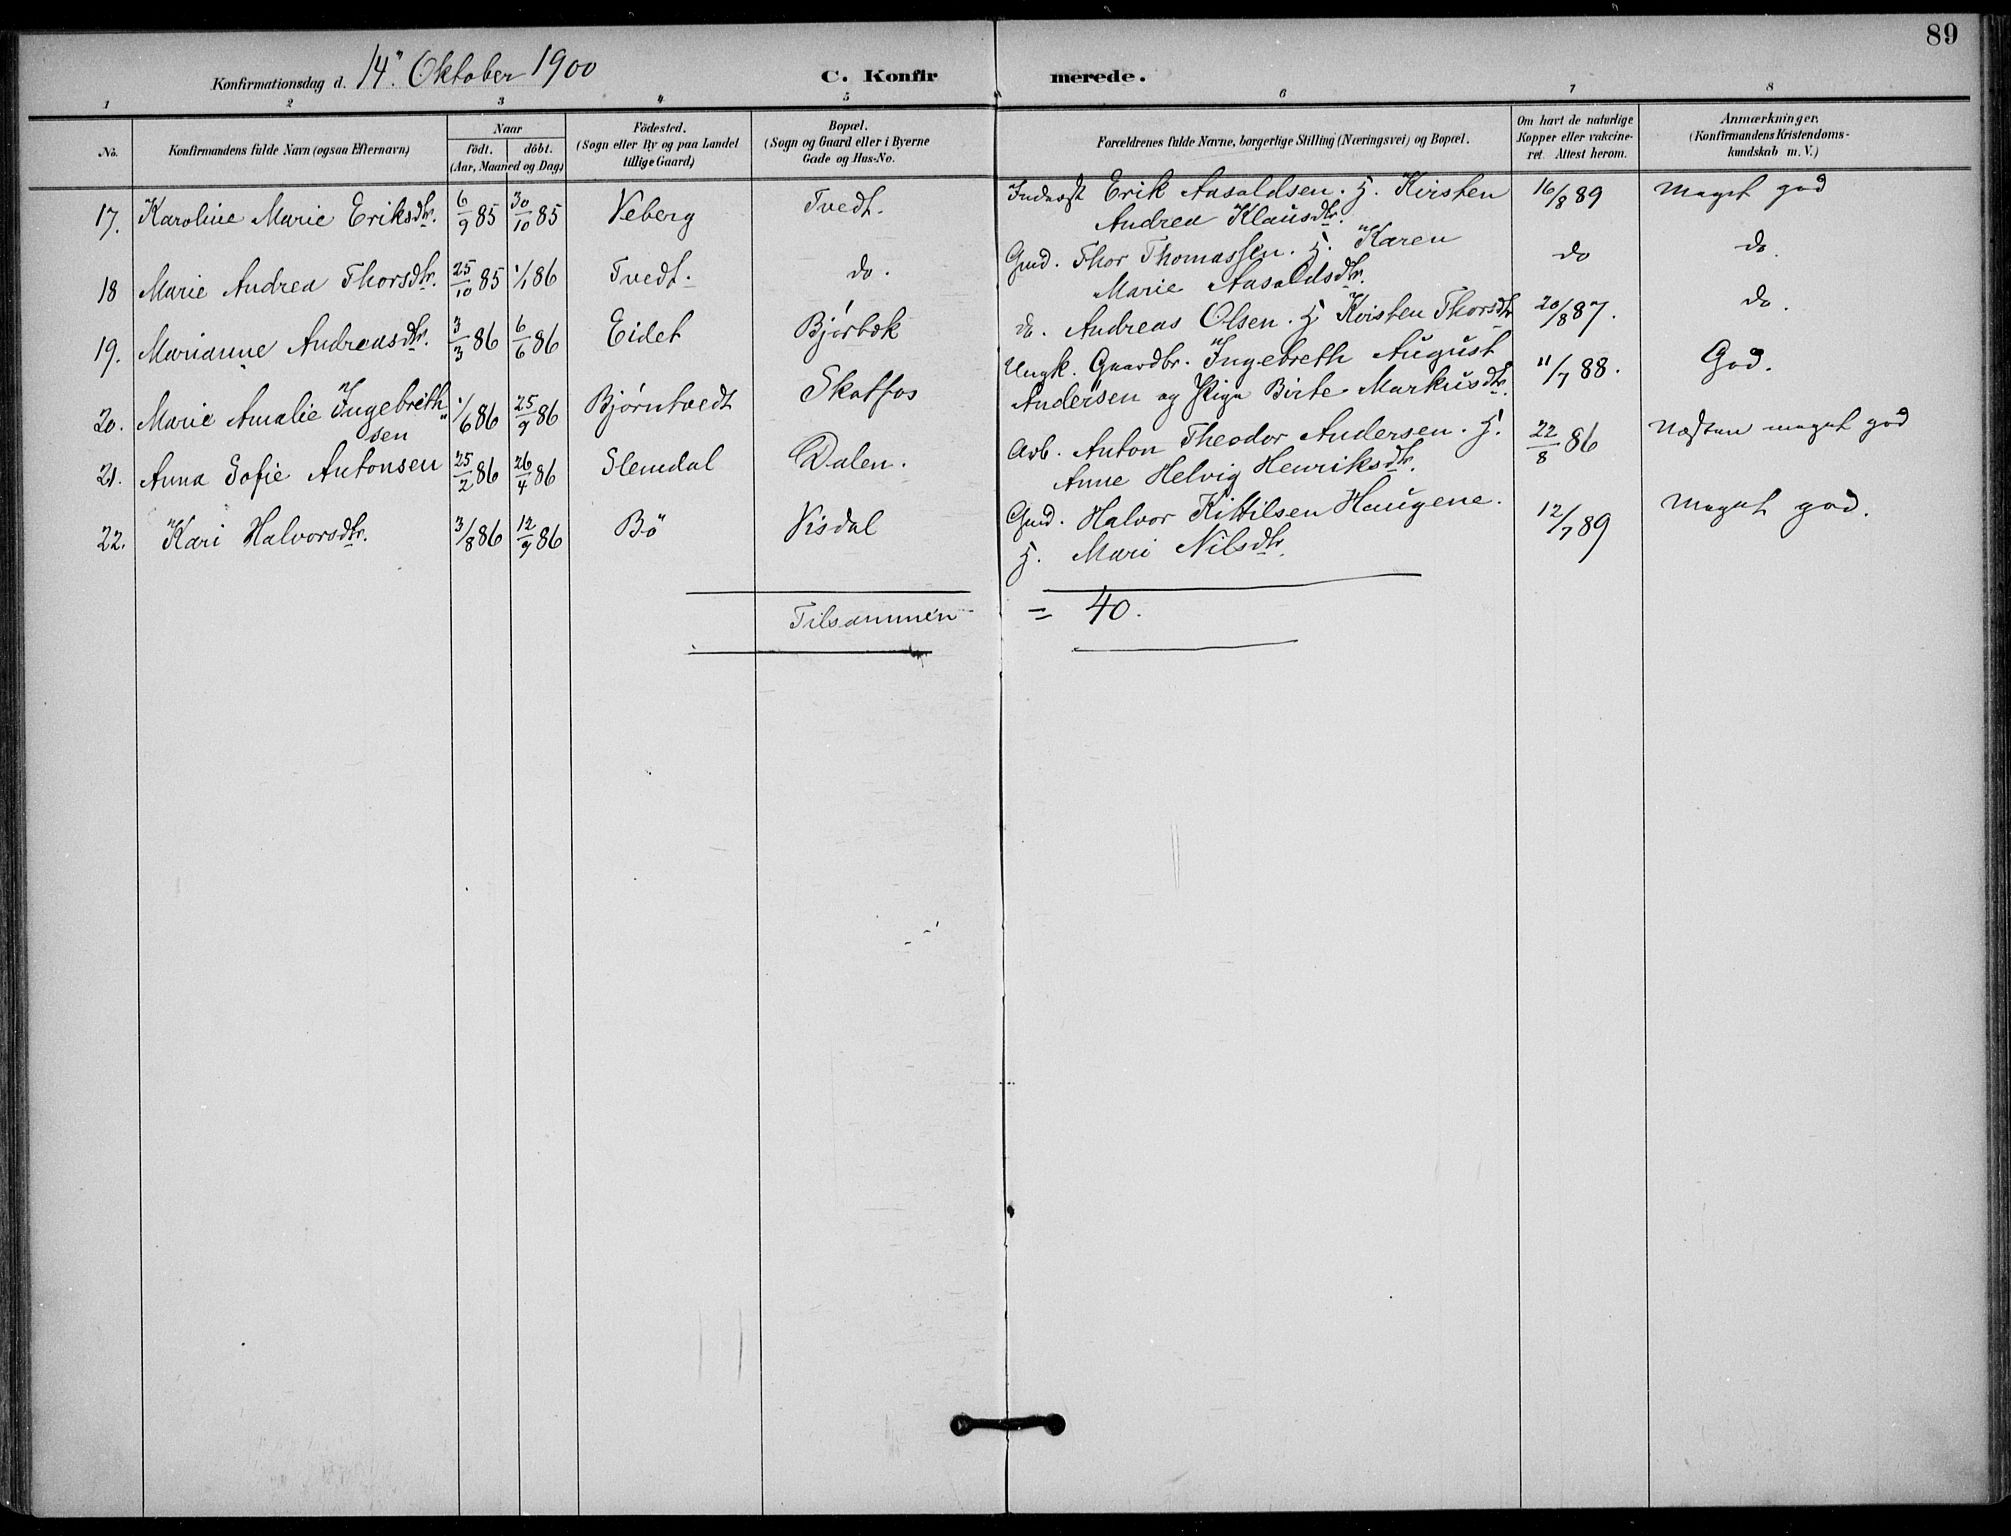 89
Konfirmationsdag d. 14. Oktober 1900 C. Konfirmerede.
1 2 3 4 5 6 7 8
No. Konfirmandens fulde Navn (ogsaa Efternavn) Naar födt. döbt. (Aar, Maaned og Dag) Födested. (Sogn eller By og paa Landet tillige Gaard) Bopæl. (Sogn og Gaard eller i Byerne Gade og Hus-No. Forældrenes fulde Navne, borgerlige Stilling (Næringsvei) og Bopæl. Om havt de naturlige Kopper eller vakcineret. Attest herom. Anmærkninger. (Konfirmandens Kristendomskundskab m. V.)
17. Karoline Marie Eriksdtr. 6/9 85 30/10 85 Veberg Tvedt. Inderst Erik Aasoldsen. H. Kirsten 16/8 89 Meget god
Andrea Klausdtr.
18 Marie Andrea Thorsdtr. 25/10 85 1/1 86 Tvedt. do. Gmd. Thor Thomassen. H. Karen do do.
Marie Aasoldsdtr.
19. Marianne Andreasdtr. 3/3 86 6/6 86 Eidet Bjørbæk do. Andreas Olsen. H Kirsten Thorsdtr 20/8 87. do.
20. Marie Amalie Ingebreth"sen 1/6 86 25/9 86 Bjørntvedt Skotfos Ungk. Gaardbr. Ingebreth August 11/7 88. God.
Andersen og Pige Birte Markusdtr.
21. Anna Sofie Antonsen 25/2 86 26/4 86 Slemdal Dalen. Arb. Anton Theodor Andersen. H. 22/8 86 Næsten meget god
Anne Helvig Henriksdtr.
22. Kari Halvorsdtr. 3/8 86 12/9 86 Bö Visdal Gmd. Halvor Kittilsen Haugene. 12/7 89 Meget god.
H. Mari Nilsdtr.
Tilsammen = 40.